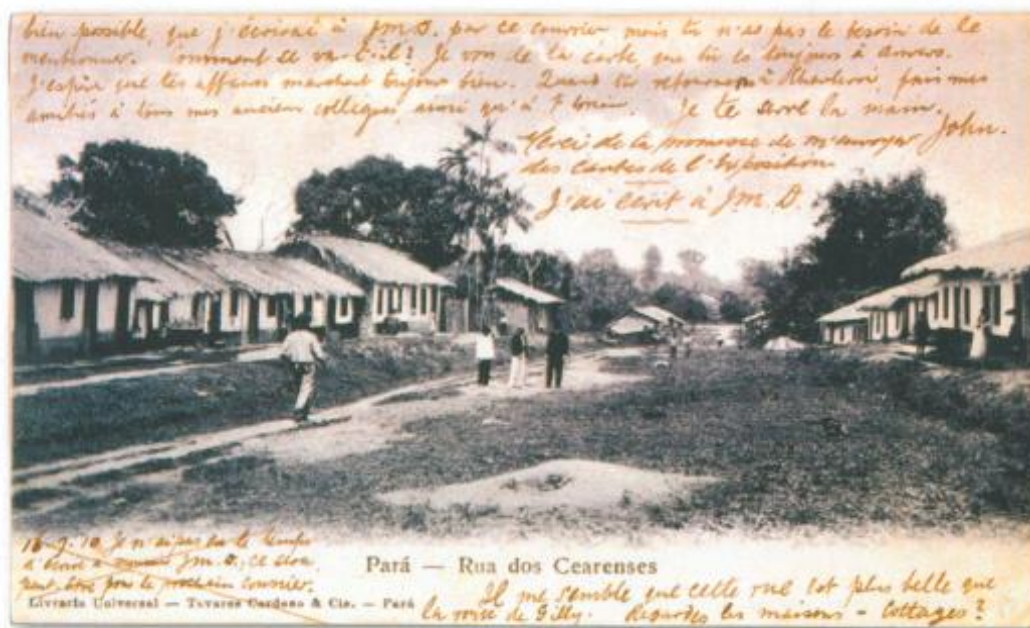 bien possible, que j'écrirai à J.M.D. par ce courrier mais tu n'as pas le besoin de le
mentionner. Comment se va-t-il? Je vois de la carte, que tu es toujours à Anvers.
J'espère que tes affaires marchent toujours bien. Quand tu retournes à Charleroi, fais mes
amitiés à tous mes anciens collegues, ainsi qu'à Je te serre la main.
John.
Merci de la promesse de m'envoyer
des cartes de l'Exposition
J'ai écrit à J.M.D.
Je n'ai pas eu le temps
J.M.D., ce sera
pour le prochain courrier.
Pará — Rua dos Cearenses
Livraria Universal — Tavares Cardoso & Cia. — Pará
Il me semble que cette rue est plus belle que
la voirie de Gilly. Regardes les maisons - Cottages?